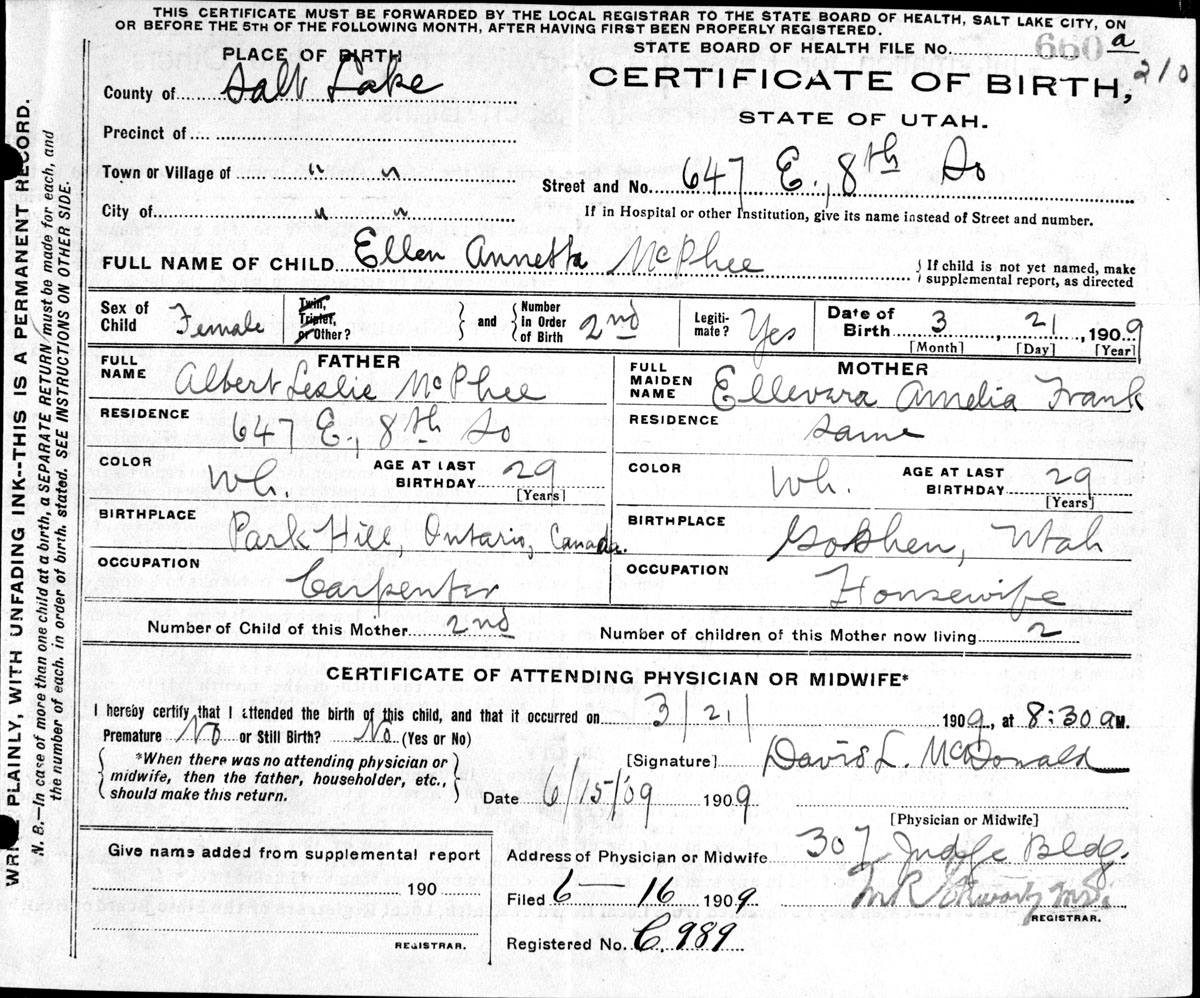 THIS CERTIFICATE MUST BE FORWARDED BY THE LOCAL REGISTRAR TO THE STATE BOARD OF HEALTH, SALT LAKE CITY, ON
OR BEFORE THE 5TH OF THE FOLLOWING MONTH, AFTER HAVING FIRST BEEN PROPERLY REGISTERED.
WRITE PLAINLY, WITH UNFADING INK--THIS IS A PERMANENT RECORD.
N. B.—In case of more than one child at a birth, a SEPARATE RETURN must be made for each, and
the number of each, in order of birth, stated. SEE INSTRUCTIONS ON OTHER SIDE.
STATE BOARD OF HEALTH FILE No. 660 a
210
CERTIFICATE OF BIRTH,
STATE OF UTAH.
PLACE OF BIRTH
County of Salt Lake
Precinct of
Town or Village of " "
Street and No. 647 E., 8th So
City of " "
If in Hospital or other Institution, give its name instead of Street and number.
FULL NAME OF CHILD Ellen Annetta McPhee
{ If child is not yet named, make
supplemental report, as directed
Sex of Child Female
Twin, Triplet, or Other?
} and { Number in Order of Birth 2nd
Legiti-mate? Yes
Date of Birth 3, 21, 1909
[Month] [Day] [Year]
FATHER
FULL NAME Albert Leslie McPhee
RESIDENCE 647 E., 8th So
COLOR Wh. AGE AT LAST BIRTHDAY 29
[Years]
BIRTHPLACE Park Hill, Ontario, Canada.
OCCUPATION Carpenter
MOTHER
FULL MAIDEN NAME Ellevera Amelia Frank
RESIDENCE same
COLOR Wh. AGE AT LAST BIRTHDAY 29
[Years]
BIRTHPLACE Goshen, Utah
OCCUPATION Housewife
Number of Child of this Mother 2nd Number of children of this Mother now living 2
CERTIFICATE OF ATTENDING PHYSICIAN OR MIDWIFE*
I hereby certify that I attended the birth of this child, and that it occurred on 3/21/ 1909, at 8:30 a M.
Premature No or Still Birth? No (Yes or No)
{ *When there was no attending physician or
midwife, then the father, householder, etc.,
should make this return. }
[Signature] David L. McDonald
Date 6/15/09 1909.
[Physician or Midwife]
Address of Physician or Midwife 307 Judge Bldg.
Give name added from supplemental report
190
REGISTRAR.
Filed 6-16 1909
REGISTRAR.
Registered No. C, 989